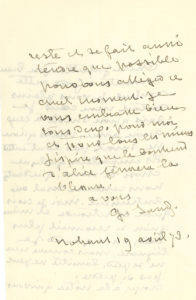 reste et se fait aussi
tendre que possible
pour vous alléger ce
cruel moment. Je
vous embrasse bien
tous deux, pour moi
et pour tous les miens
J'espère que la
d'Alice
bonne.
à vous
G. Sand
Nohant 19 avril 73.